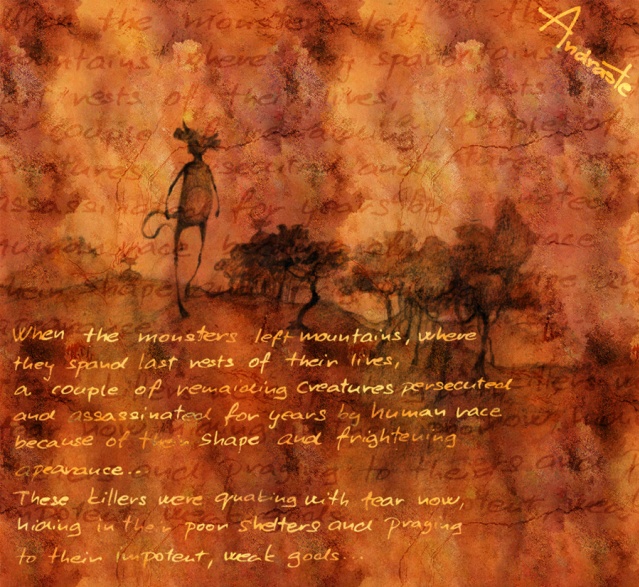 Andraste
When the monsters left mountains, where
they spand last rests of their lives,
a couple of remaiding creatures persecuted
and assassinated for years by human race
because of their shape and frightening
apearance...
These killers were quaking with fear now,
hiding in their poor shelters and praging
to their impotent, weak gods...